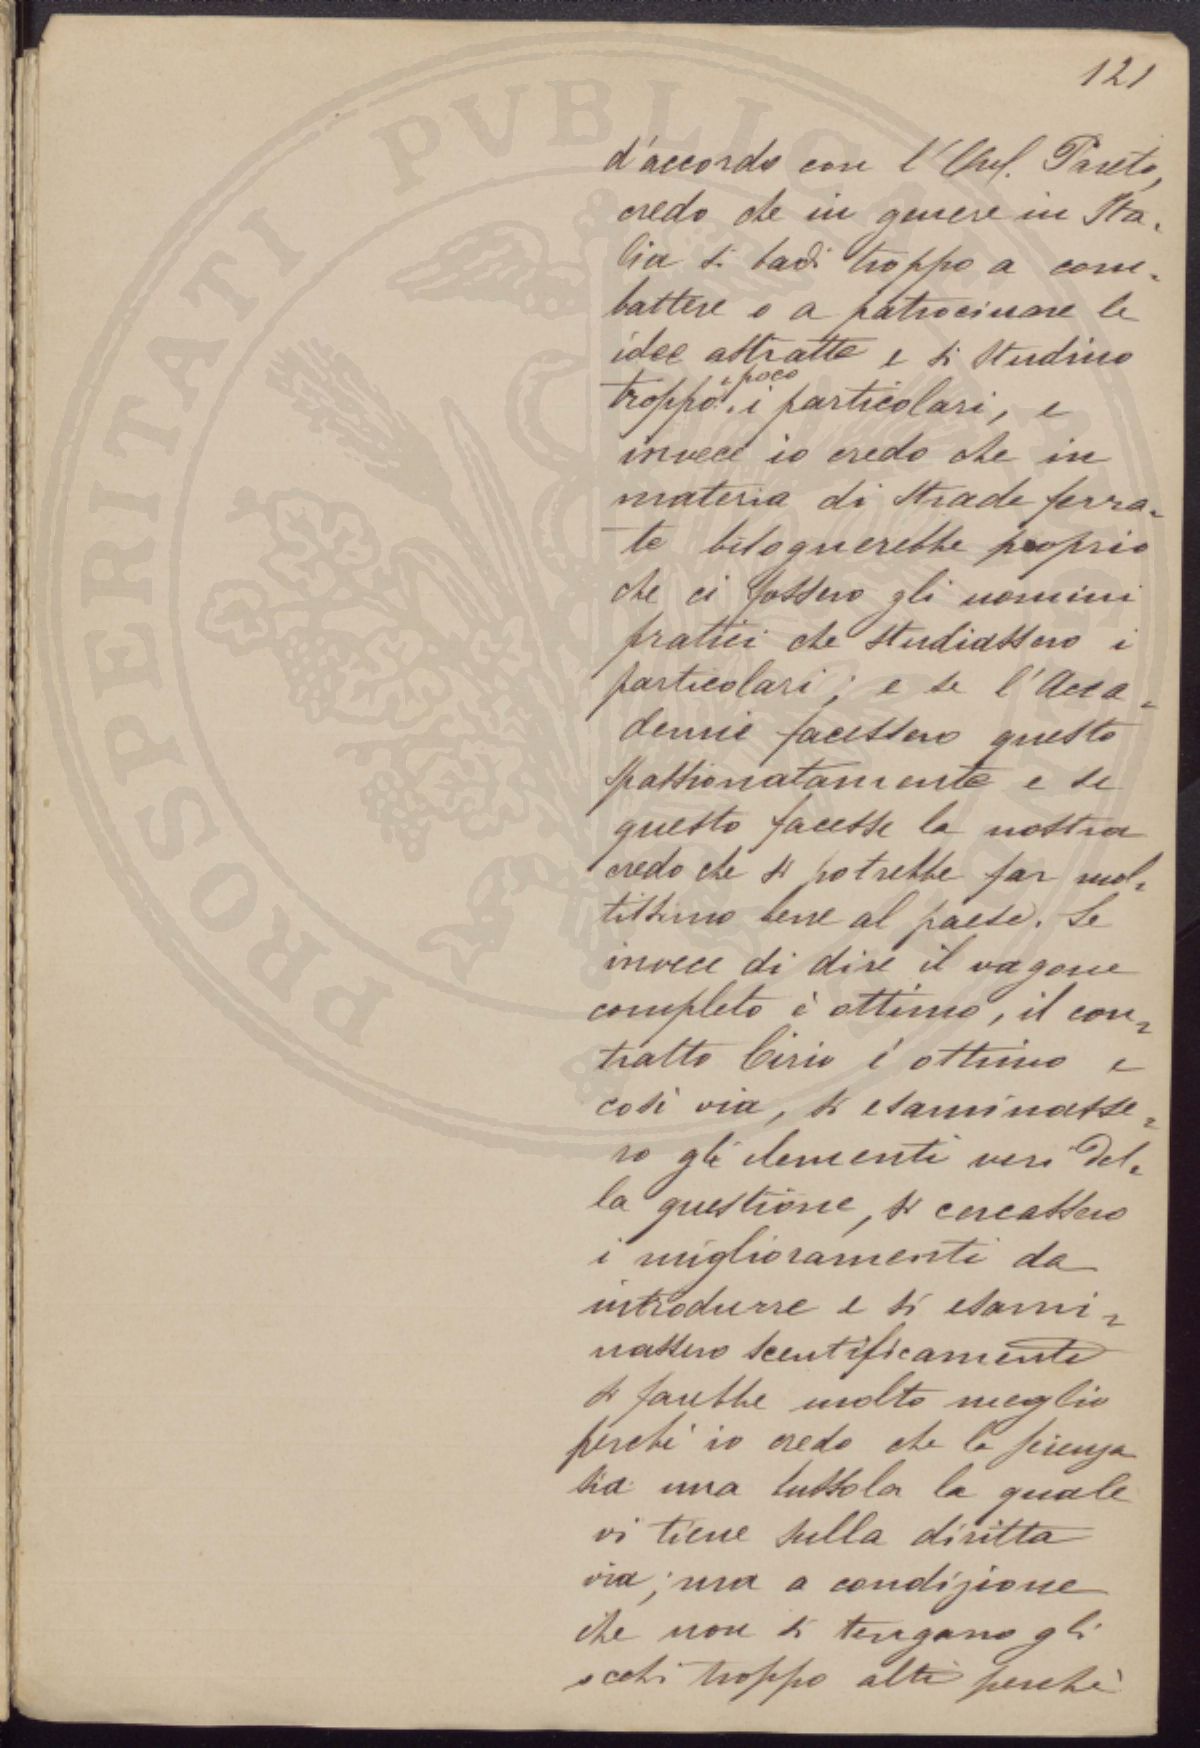 121
d'accordo con l'On. Pareto,
credo che in genere in Ita=
lia si badi troppo a com=
battere o a patrocinare le
idee astratte e si studino
troppo poco i particolari, e
invece io credo che in
materia di strade ferra=
te bisognerebbe proprio
che ci fossero gli uomini
pratici che studiassero i
particolari; e se l'Acca=
demie facessero questo
spassionatamente e se
questo facesse la nostra
credo che si potrebbe far mol=
tissimo bene al paese. Se
invece di dire il vagone
completo è ottimo, il con=
tratto Cirio è ottimo e
così via, si esaminasse=
ro gli elementi veri del=
la questione, si cercassero
i miglioramenti da
introdurre e si esami=
nassero scentificamente
si farebbe molto meglio
perchè io credo che la scienza
sia una bussola la quale
vi tiene sulla diritta
via; ma a condizione
che non si tengano gli
occhi troppo alti perchè
PROSPERITATI PVBLICAE